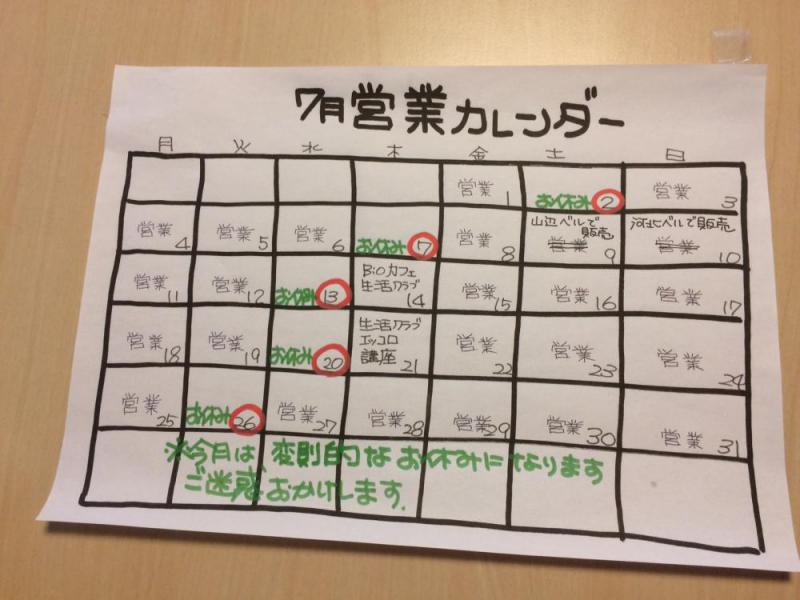 7月営業カレンダー
月 火 水 木 金 土 日
営業 1 お休み 2 営業 3
営業 4 営業 5 営業 6 お休み 7 営業 8 山辺ベルで 販売 営業 9 河北ベルで販売 営業 10
営業 11 営業 12 お休み 13 Bioカフェ 生活クラブ 14 営業 15 営業 16 営業 17
営業 18 営業 19 お休み 20 生活クラブ エッコロ 講座 21 営業 22 営業 23 営業 24
営業 25 お休み 26 営業 27 営業 28 営業 29 営業 30 営業 31
※今月は、変則的なお休みになります
ご迷惑おかけします.